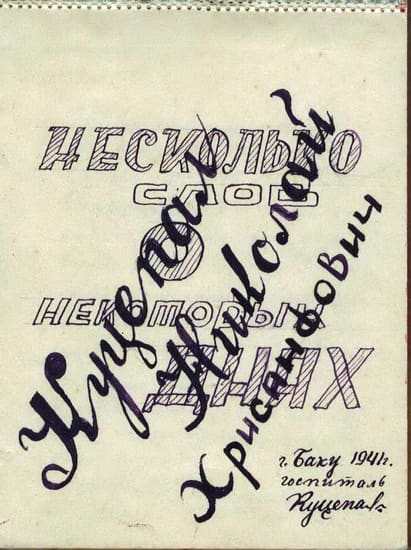 НЕСКОЛЬКО
СЛОВ
О
НЕКОТОРЫХ
ДНЯХ
Куцепал
Николай
Хрисанфович
г. Баку 1941г.
госпиталь